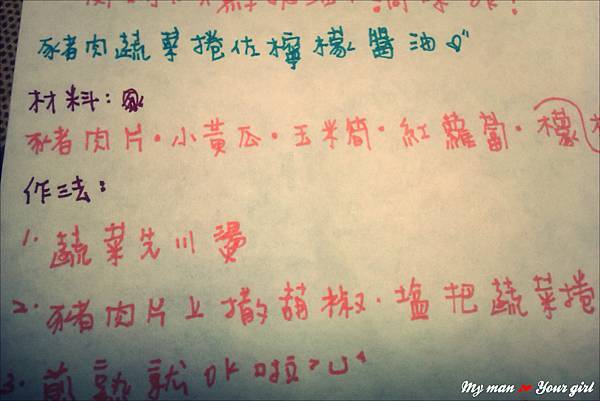 豬肉蔬菜捲佐檸檬醬油
材料:
豬肉片·小黃瓜·玉米筍·紅蘿蔔·檬
作法:
1. 蔬菜先川燙
2. 豬肉片上撒葫椒·塩把蔬菜捲
3. 煎熟就OK啦
My man Your girl